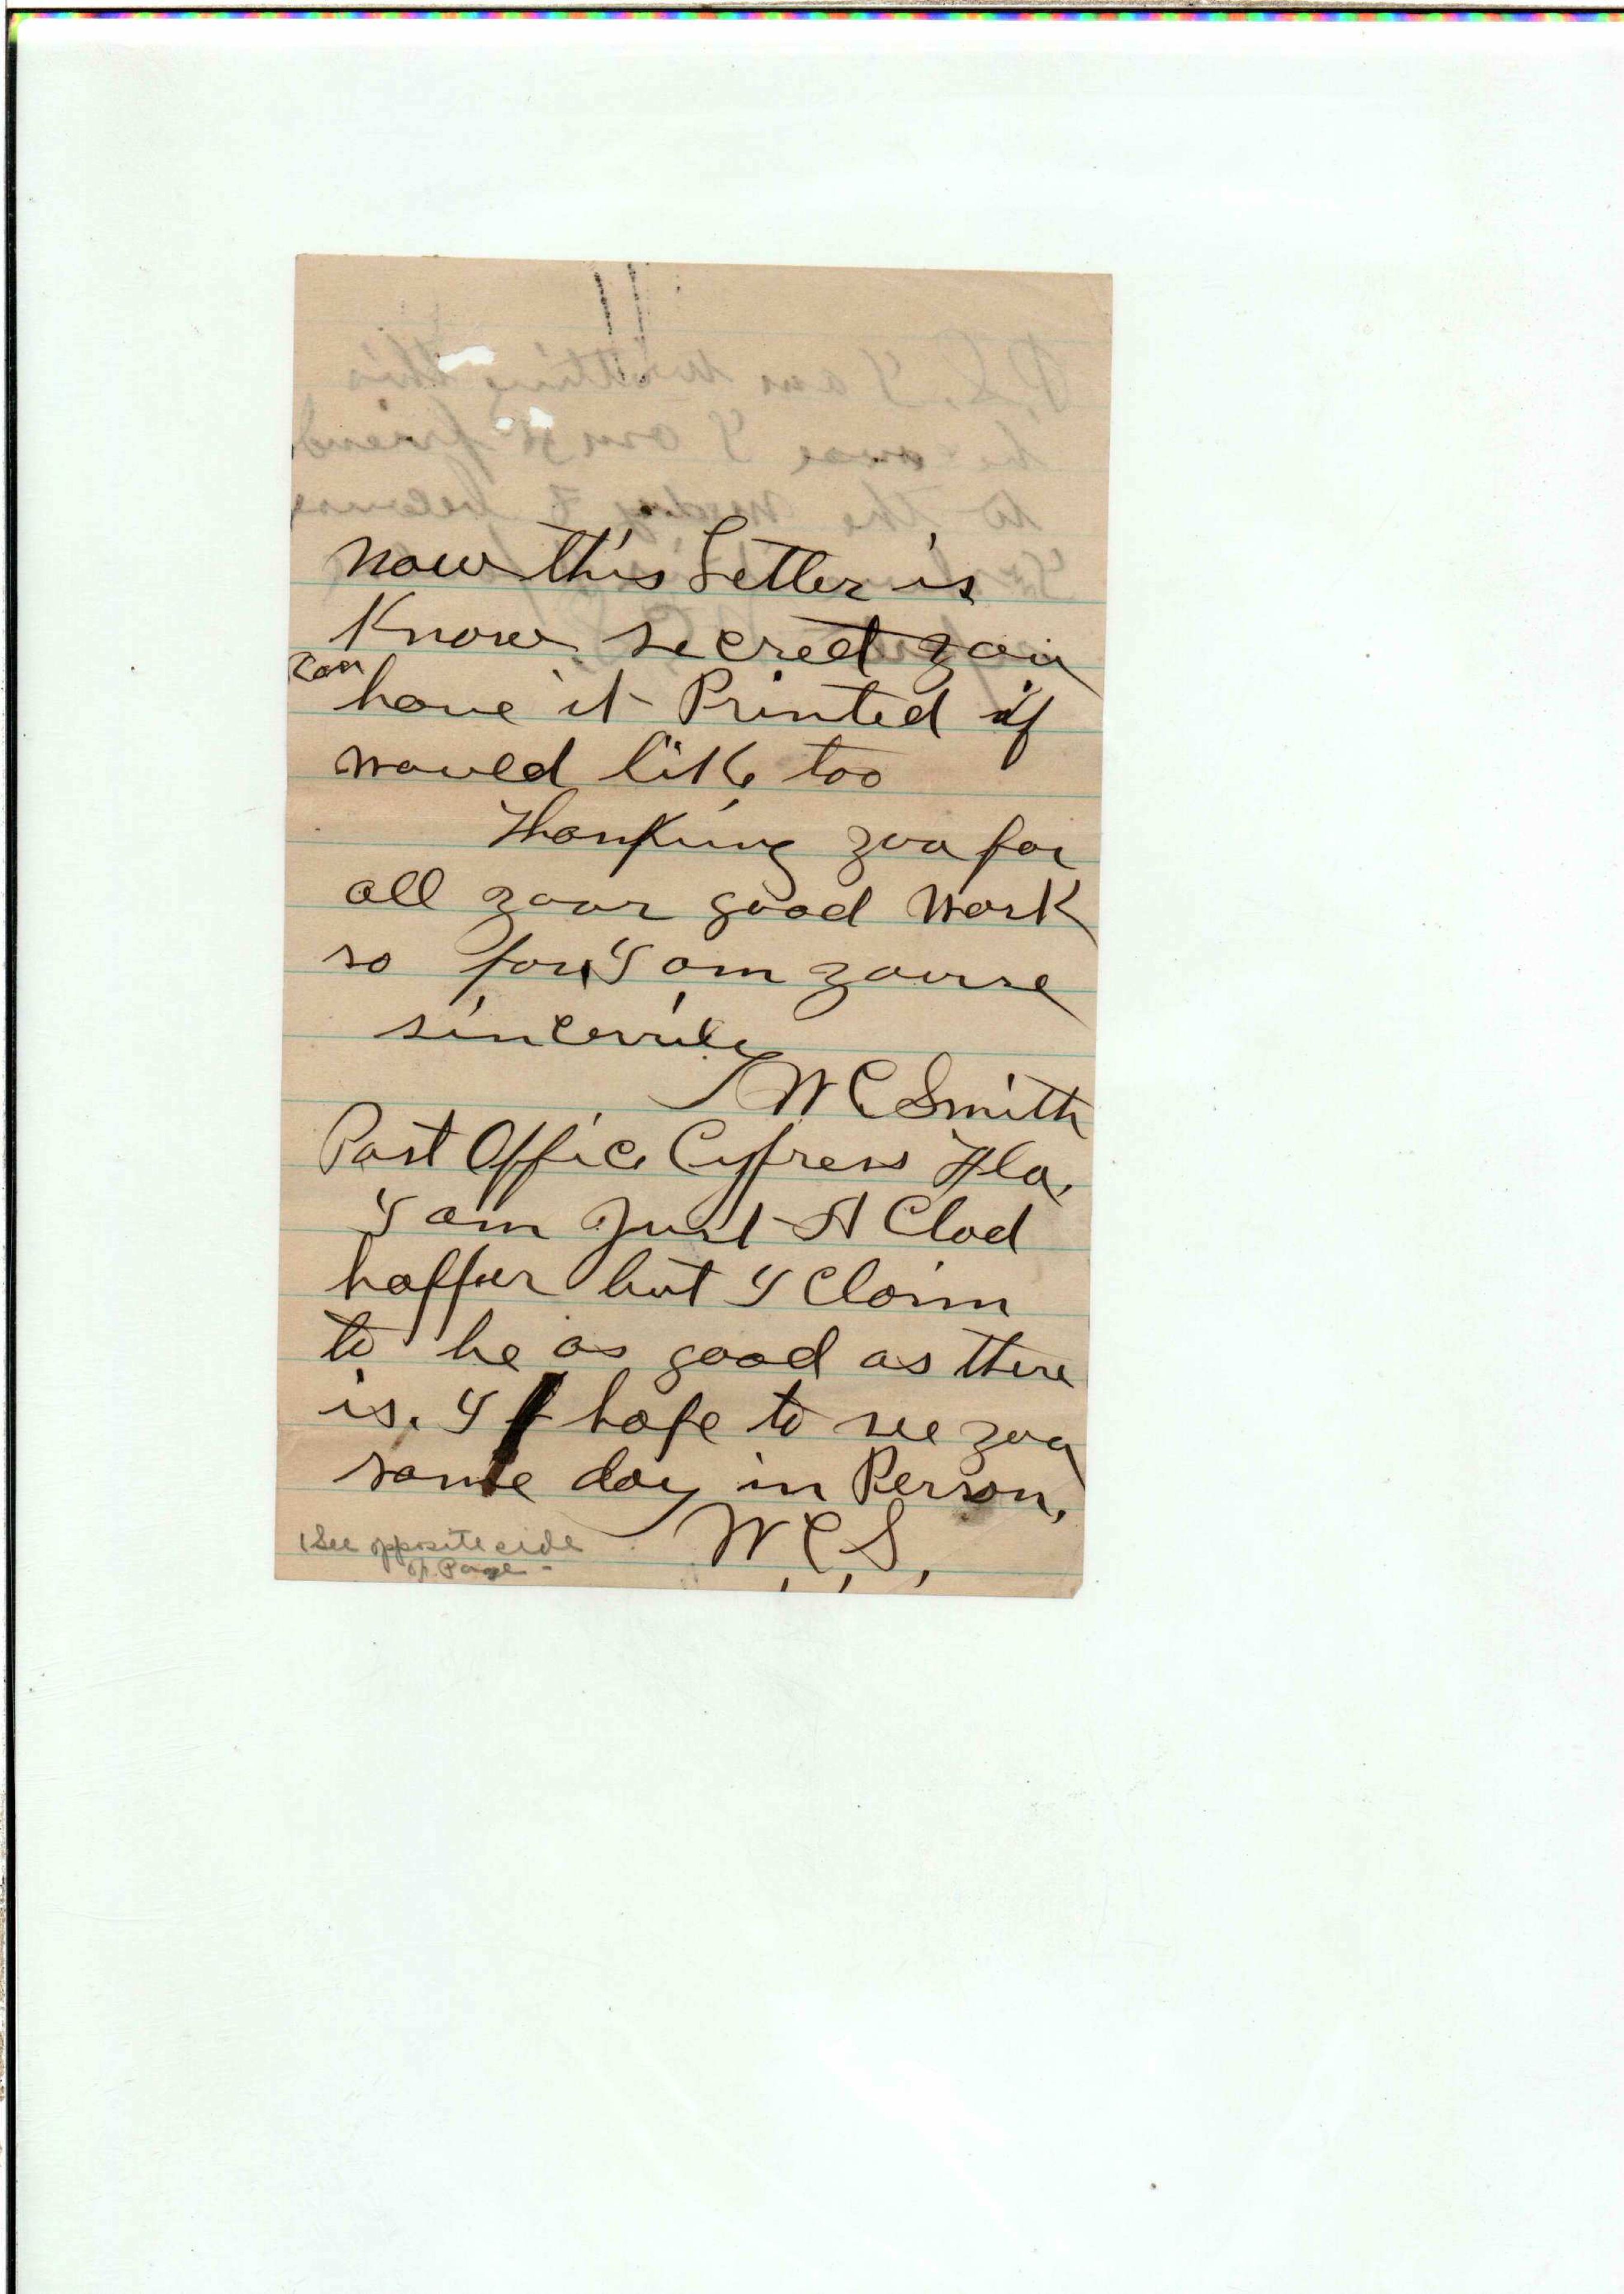 now this Letter is
Know secret you
can
have it Printed if
would like too
Thanking you for
all your good work
so far, I am yourse
sincerrile
W C Smith
Post Office Cypress Fla.
I am Just A Clod
hopper but I Claim
to be as good as there
is. I hope to see you
some day in Person.
W.C.S.
(See opposite side
of Page -